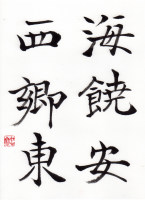 海饒安
西卿東